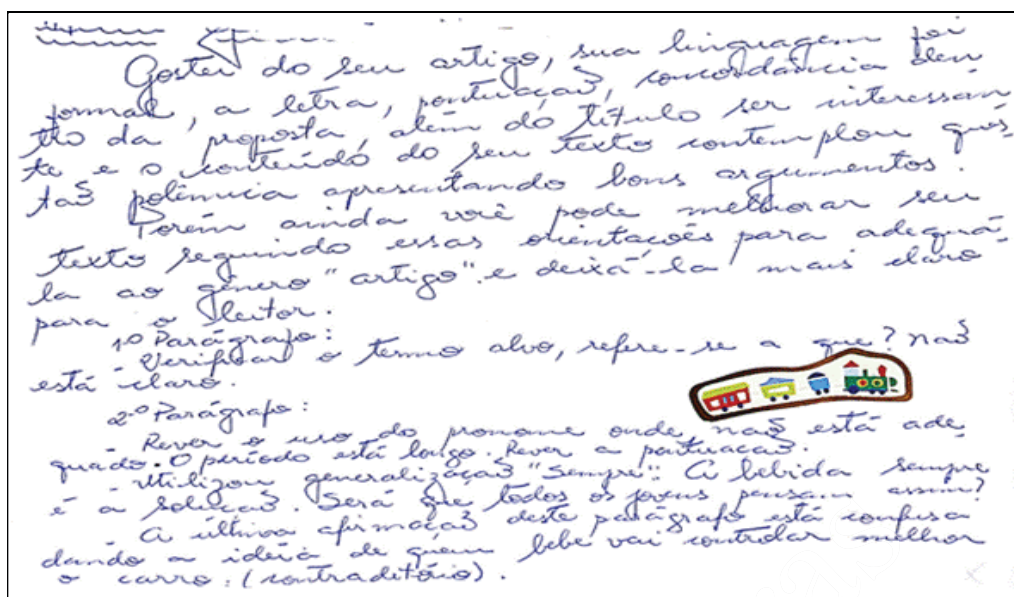 Gostei do seu artigo, sua linguagem foi
formal, a letra, pontuação, concordância den
tro da proposta, além do título ser interessan
te e o conteúdo do seu texto contemplou ques
tão polêmica apresentando bons argumentos.
Porém ainda você pode melhorar seu
texto seguindo essas orientações para adequá
la ao gênero "artigo" e deixá-la mais claro
para o leitor.
1º Parágrafo:
Verificar o termo alvo, refere-se a que? não
está claro.
2º Parágrafo:
Rever o uso do pronome onde, não está ade
quado. O período está longo. Rever a pontuação.
Utilizou generalização "sempre". A bebida sempre
é a solução. Será que todos os jovens pensam assim?
A última afirmação deste parágrafo está confusa
dando a ideia de quem bebe vai controlar melhor
o carro: (contraditório).